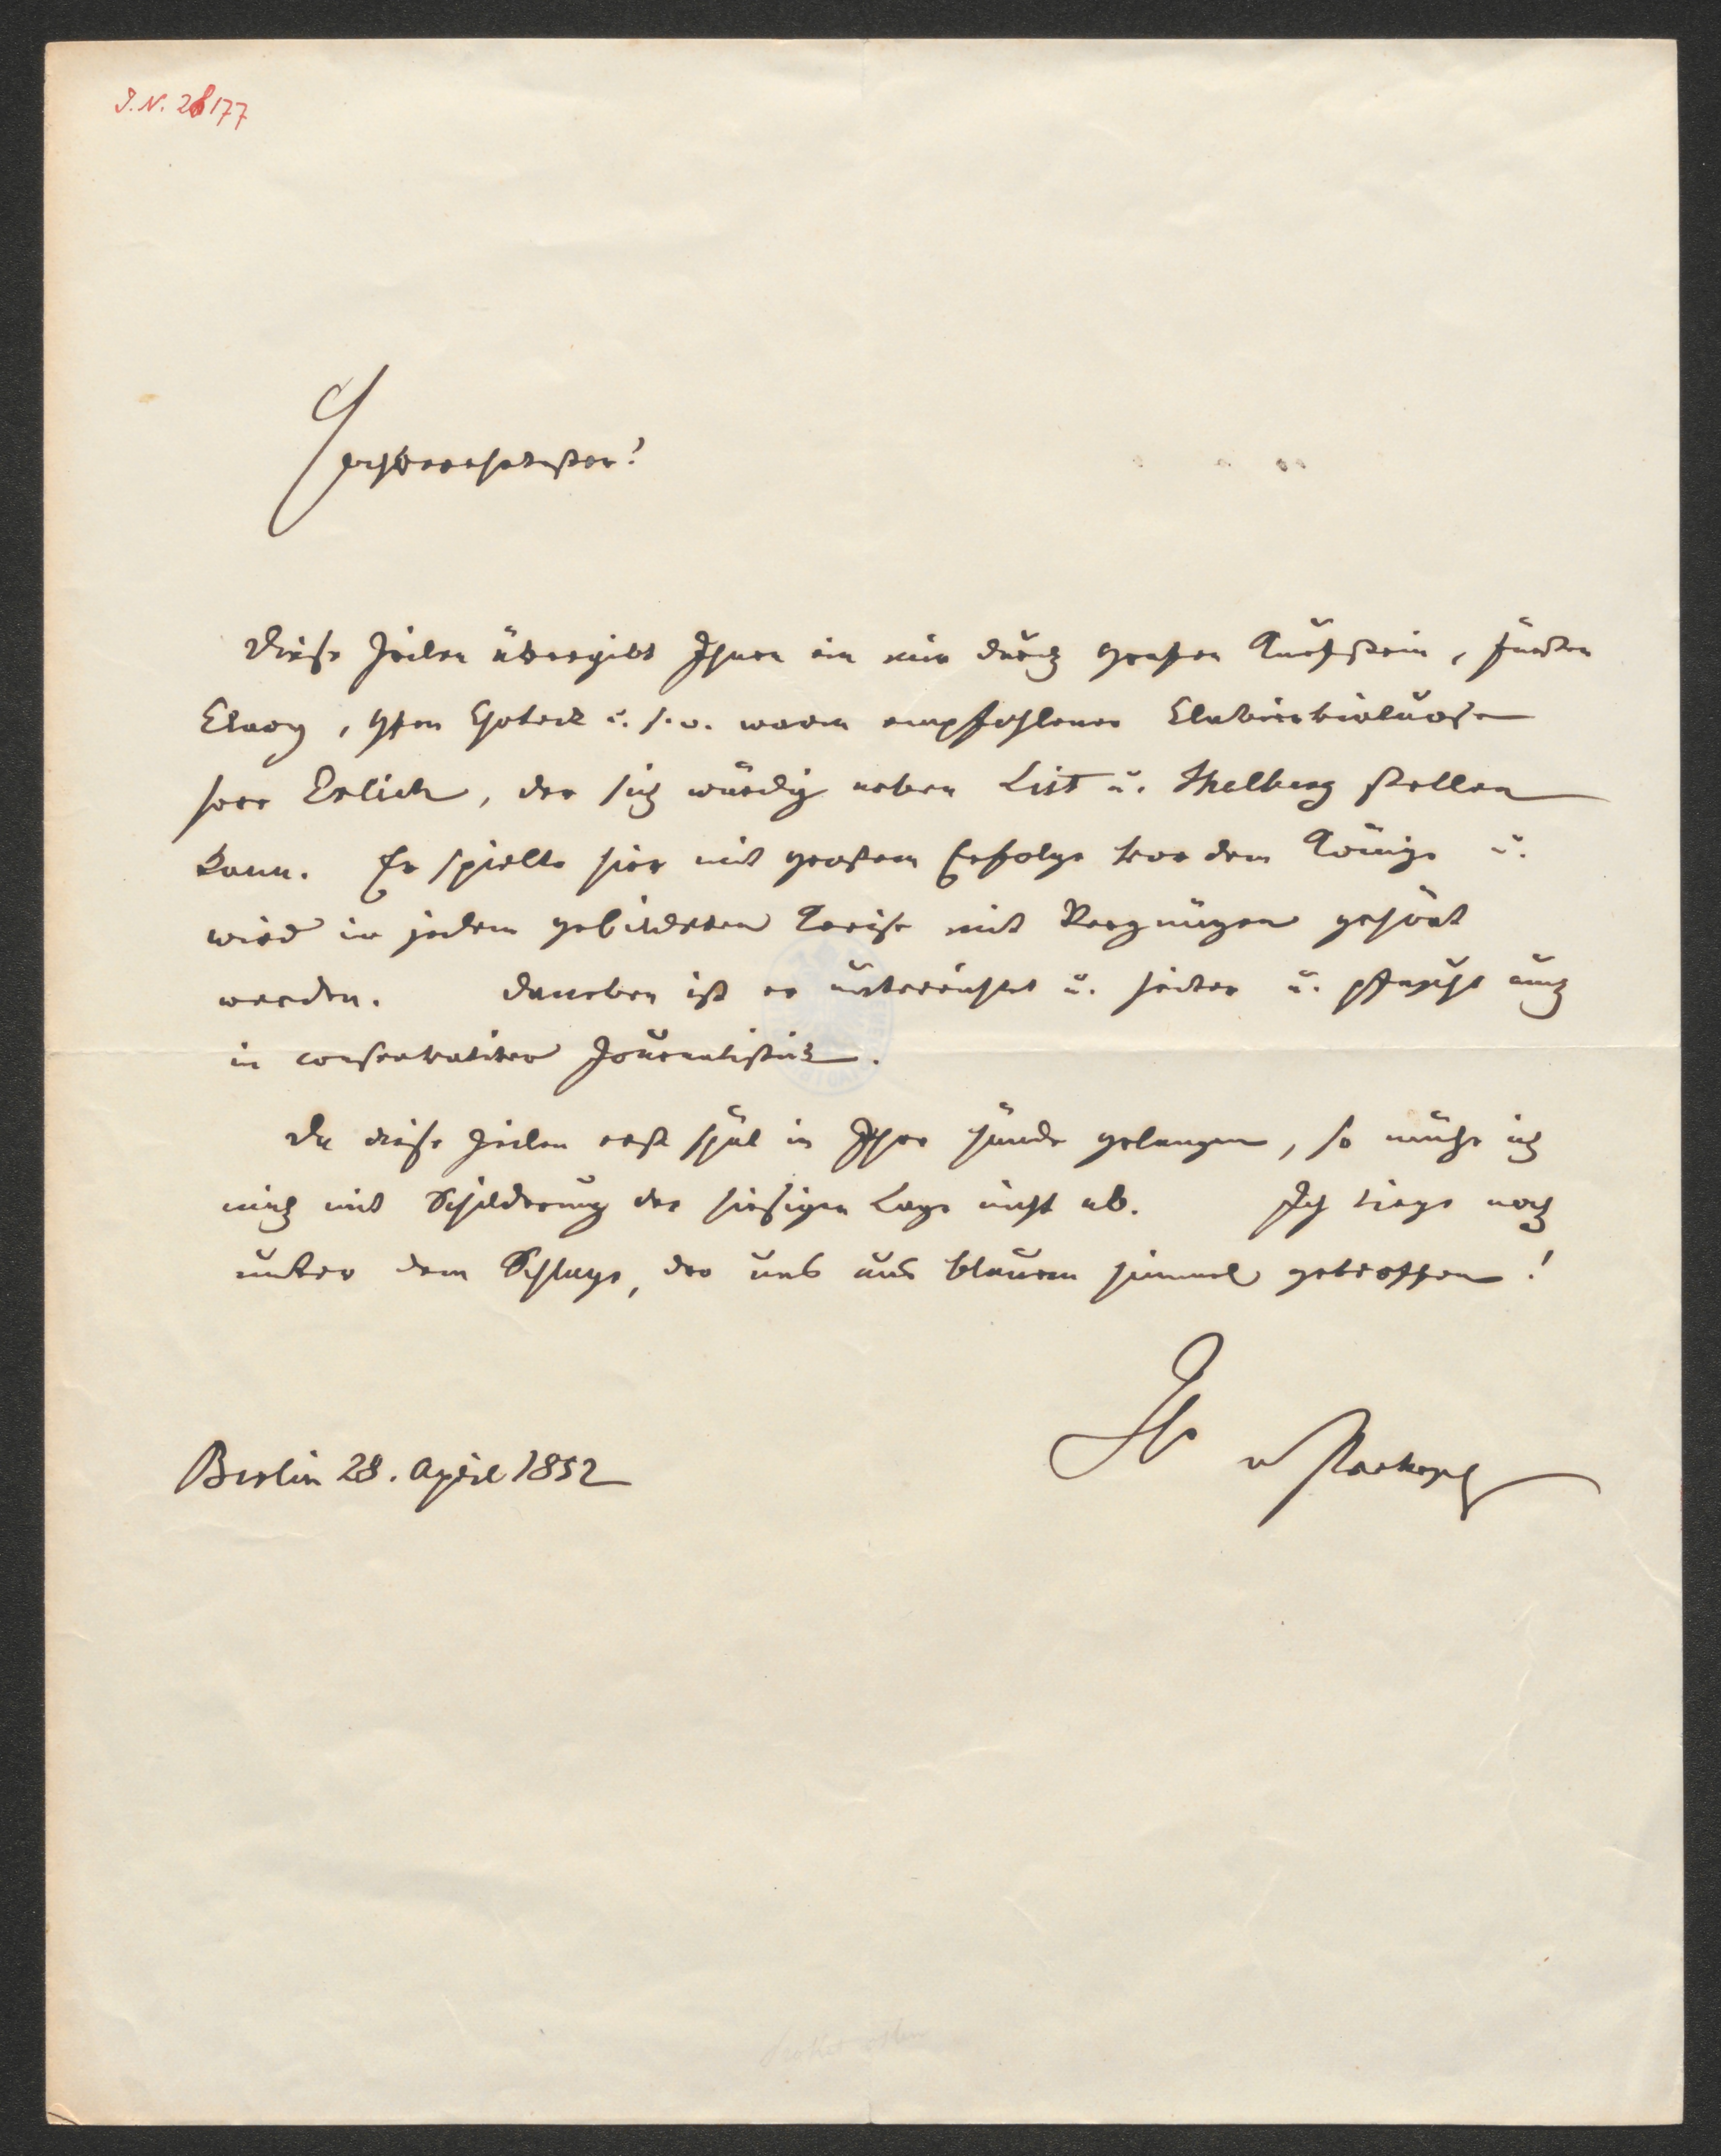 I.N. 28177
Hochverehrtester!
Diese Zeilen übergibt Ihnen ein mir durch Grafen Kuefstein, Fürsten
Clary, Gfen Chotek u. s. w. warm empfohlener Claviervirtuose
Herr Erlich, der sich würdig neben List u. Thalberg stellen
kann. Er spielte hier mit großem Erfolge vor dem Könige u.
wird in jedem gebildeten Kreise mit Vergnügen gehört
werden. Daneben ist er unterrichtet u. heiter u. pfuscht auch
in conservativer Journalistik.
Da diese Zeilen erst spät in Ihre Hände gelangen, so mühe ich
mich mit Schilderung der hiesigen Lage nicht ab. Ich liege noch
unter dem Schlage, der uns aus blauem Himmel getroffen!
Ihr
Berlin 28. April 1852